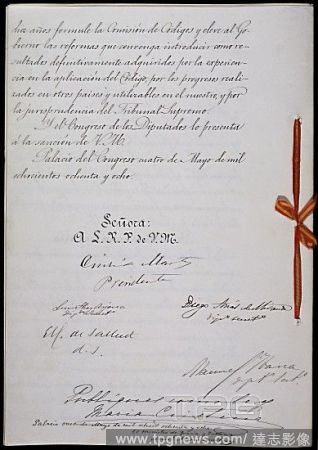 diez años formule la Comisión de Códigos y eleve al Go-
bierno las reformas que convenga introducir como re-
sultados definitivamente adquiridos por la experien-
cia en la aplicación del Código, por los progresos reali-
zados en otros países y utilizables en el nuestro, y por
la jurisprudencia del Tribunal Supremo.
Y el Congreso de los Diputados lo presenta
á la sanción de V. M.
Palacio del Congreso cuatro de Mayo de mil
ochocientos ochenta y ocho.
Señora:
A L. R. P. de V. M.
Cristino Martos
Presidente
Diego Arias de Miranda
Dipdo Secreto
M. de Sallent
d. s.
Publíquese como Ley
María Cristina
Palacio once de Mayo de mil ochocts ochenta y ocho
TPG
www.tpgnews.com / 達志影像